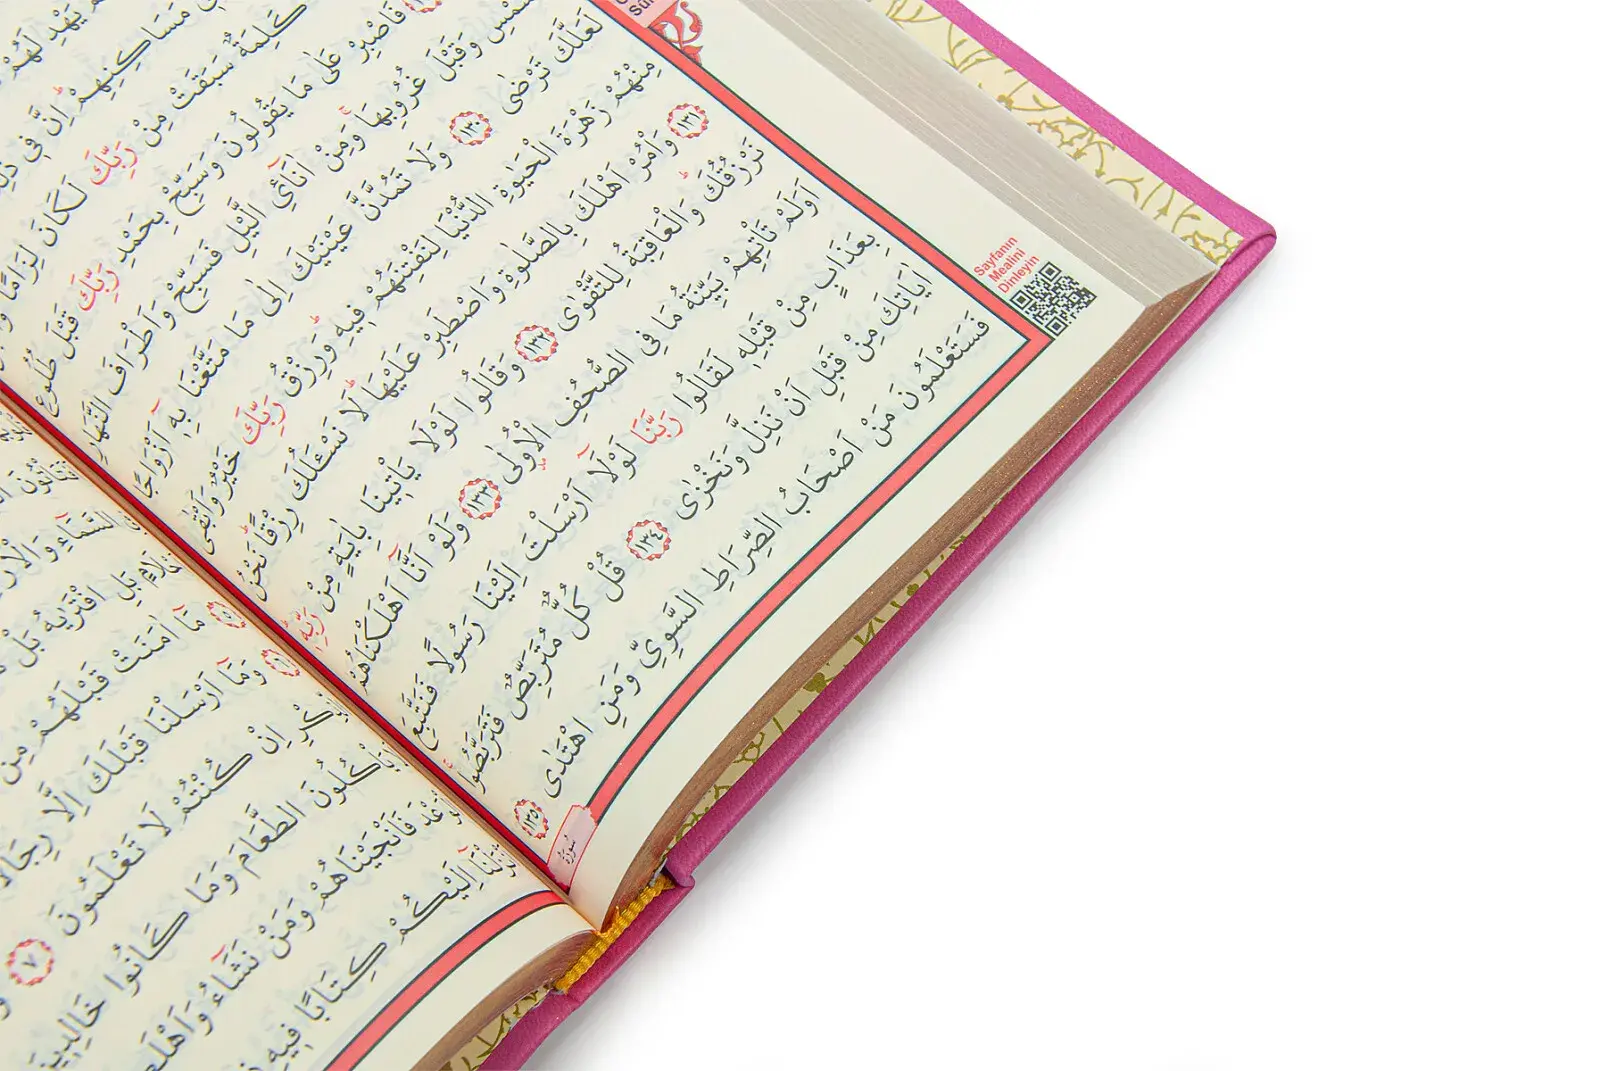 يَهْدِ لَهُمْ
مَسَاكِنِهِمْ اِنَّ فٖى
كَلِمَةٌ سَبَقَتْ مِنْ رَبِّكَ لَكَانَ لِزَامًا
فَاصْبِرْ عَلٰى مَا يَقُولُونَ وَسَبِّحْ بِحَمْدِ رَبِّكَ قَبْلَ طُلُوعِ
وَقَبْلَ غُرُوبِهَا وَمِنْ اٰنَآئِ الَّيْلِ فَسَبِّحْ وَاَطْرَافَ النَّهَارِ
لَعَلَّكَ تَرْضٰى ﴿١٣٠﴾ وَلَا تَمُدَّنَّ عَيْنَيْكَ اِلٰى مَا مَتَّعْنَا بِهٖٓ اَزْوَاجًا
مِنْهُمْ زَهْرَةَ الْحَيٰوةِ الدُّنْيَا لِنَفْتِنَهُمْ فٖيهِ وَرِزْقُ رَبِّكَ خَيْرٌ وَاَبْقٰى
﴿١٣١﴾ وَأْمُرْ اَهْلَكَ بِالصَّلٰوةِ وَاصْطَبِرْ عَلَيْهَا لَا نَسْـَٔلُكَ رِزْقًا نَحْنُ
نَرْزُقُكَ وَالْعَاقِبَةُ لِلتَّقْوٰى ﴿١٣٢﴾ وَقَالُوا لَوْلَا يَأْتٖينَا بِاٰيَةٍ مِنْ رَبِّهٖ
اَوَلَمْ تَأْتِهِمْ بَيِّنَةُ مَا فِى الصُّحُفِ الْاُولٰى ﴿١٣٣﴾ وَلَوْ اَنَّٓا اَهْلَكْنَاهُمْ
بِعَذَابٍ مِنْ قَبْلِهٖ لَقَالُوا رَبَّنَا لَوْلَٓا اَرْسَلْتَ اِلَيْنَا رَسُولًا فَنَتَّبِعَ
اٰيَاتِكَ مِنْ قَبْلِ اَنْ نَذِلَّ وَنَخْزٰى ﴿١٣٤﴾ قُلْ كُلٌّ مُتَرَبِّصٌ فَتَرَبَّصُوا
فَسَتَعْلَمُونَ مَنْ اَصْحَابُ الصِّرَاطِ السَّوِىِّ وَمَنِ اهْتَدٰى ﴿١٣٥﴾
سُورَةُ
Sayfanın
Mealini
Dinleyin
السَّمَٓاءِ وَالْاَرْ
بَلِ افْتَرٰيهُ بَلْ
﴿٥﴾ مَٓا اٰمَنَتْ قَبْلَهُمْ مِنْ
﴿٦﴾ وَمَٓا اَرْسَلْنَا قَبْلَكَ اِلَّا رِجَالًا
اِنْ كُنْتُمْ لَا تَعْلَمُونَ ﴿٧﴾
يَأْكُلُونَ الطَّعَامَ وَمَا كَانُوا خَالِدٖينَ
فَاَنْجَيْنَاهُمْ وَمَنْ نَشَٓاءُ وَاَهْلَ
اِلَيْكُمْ كِتَابًا فٖيهِ